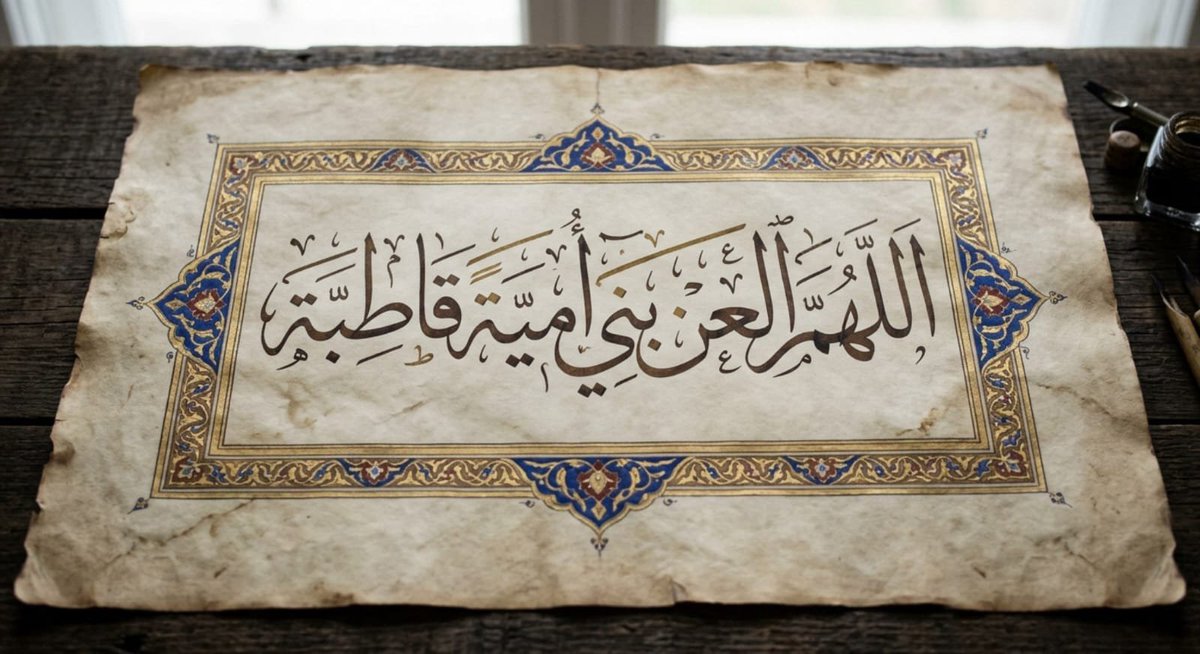 اَللّٰهُمَّ الْعَنْ بَنِي أُمَيَّةً قَاطِبَّة